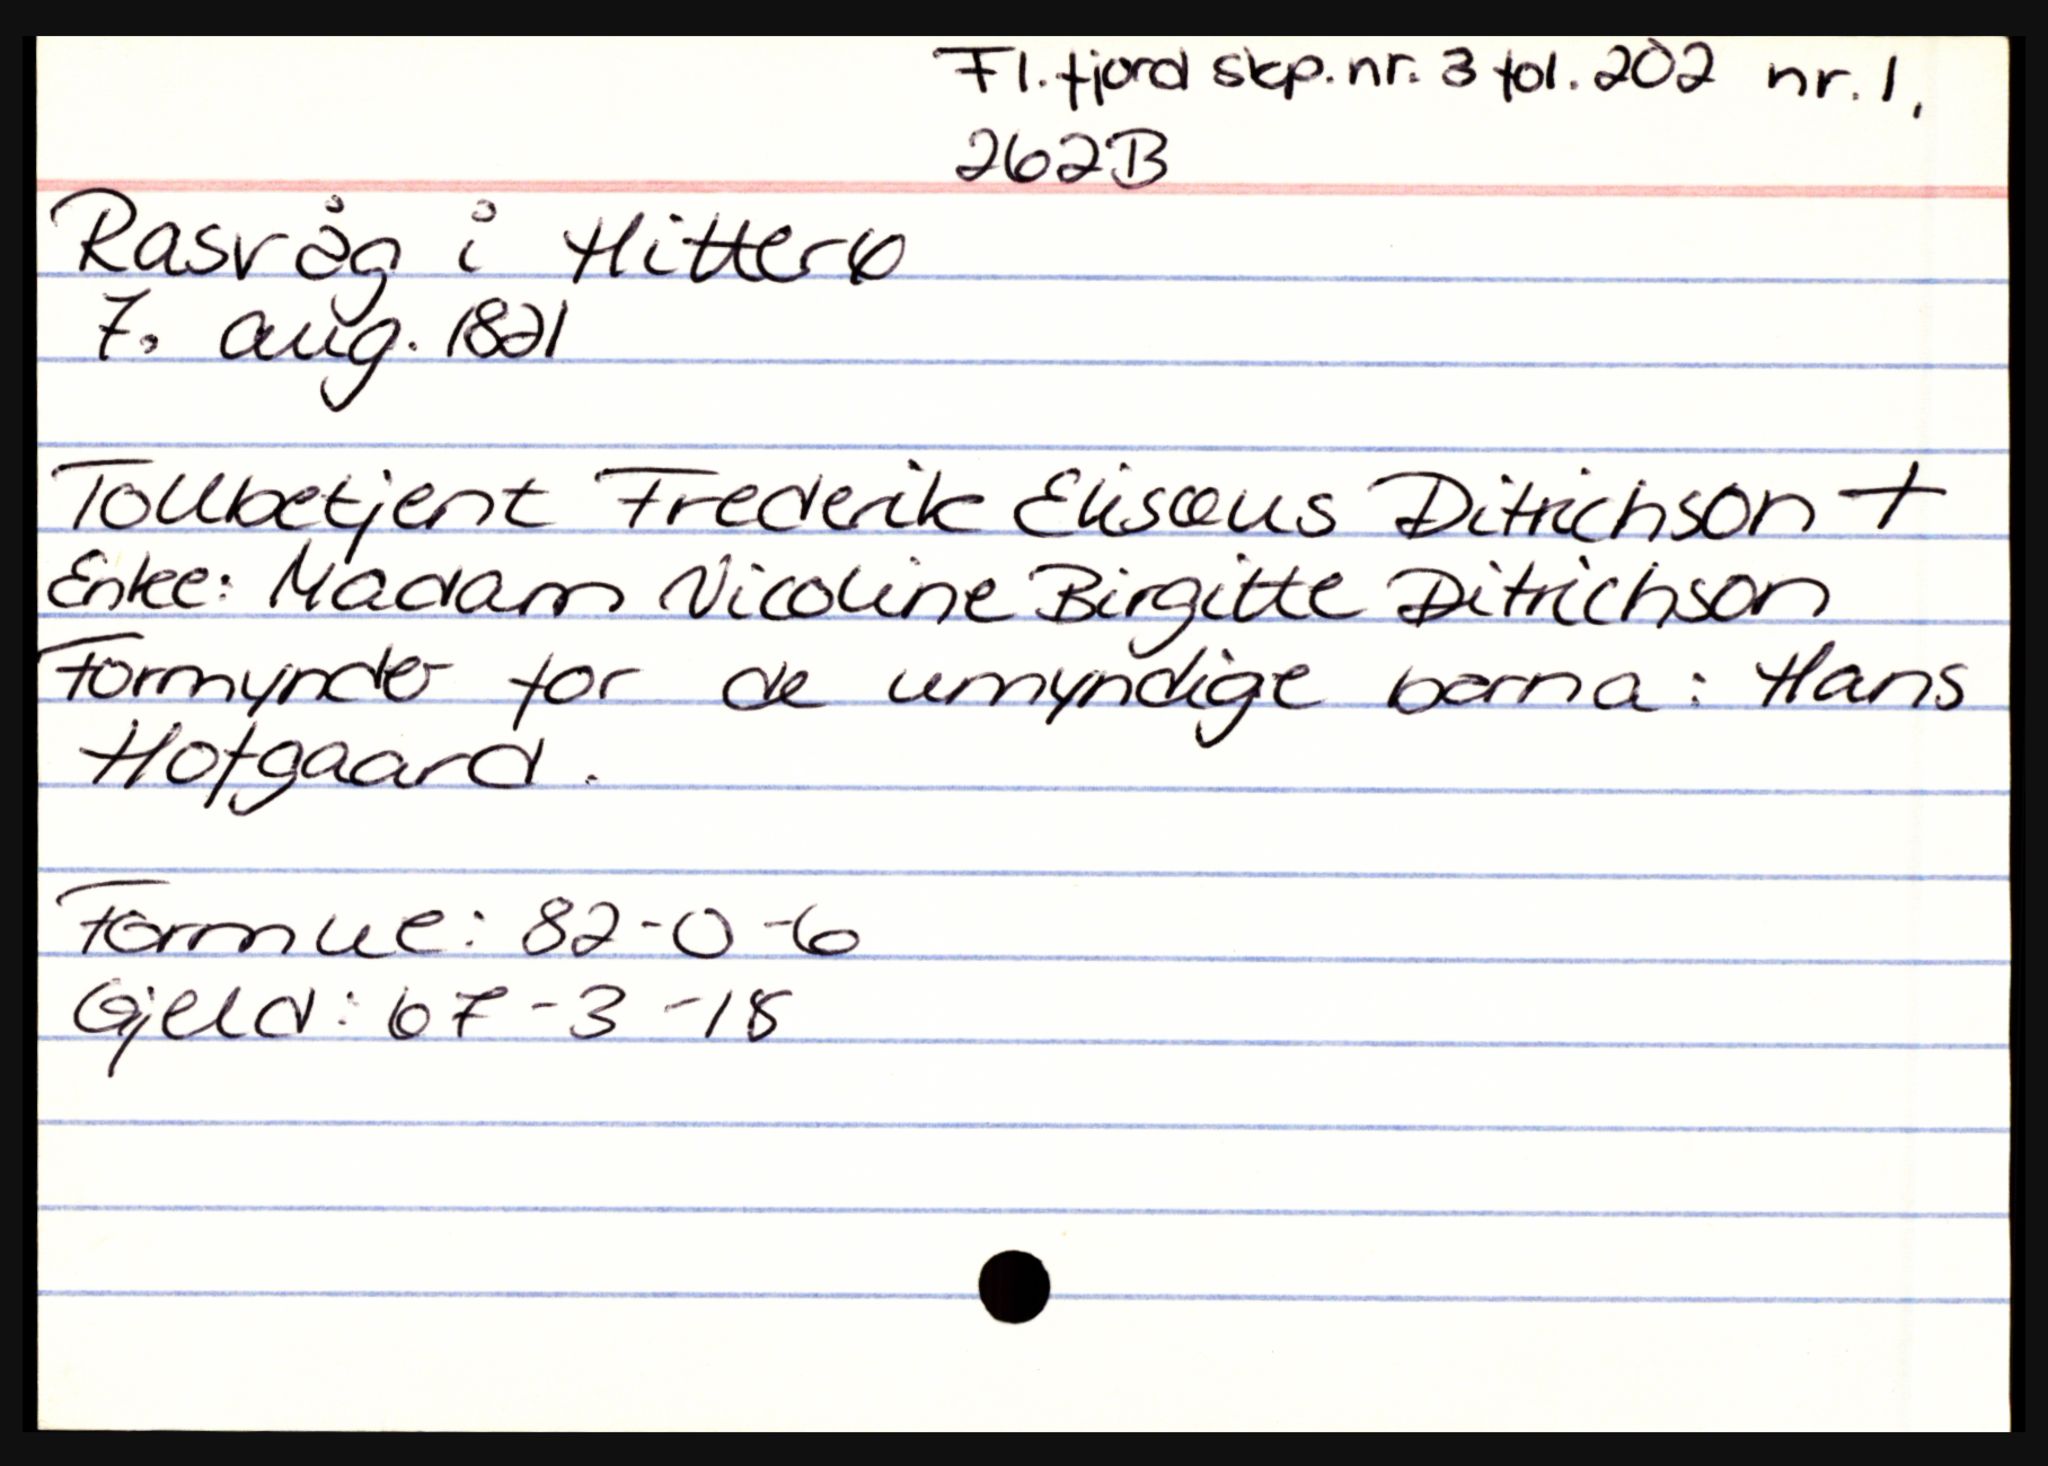 Fl.fjord skp.nr. 3 fol. 202 nr. 1,
262B
Rasvåg i Hitterö
7. aug. 1821
Tollbetjent Frederik Elisæus Ditrichson +
Enke: Madam Nicoline Birgitte Ditrichson
Formynder for de umyndige barna: Hans
Hofgaard.
Formue: 82-0-6
Gjeld: 67-3-18